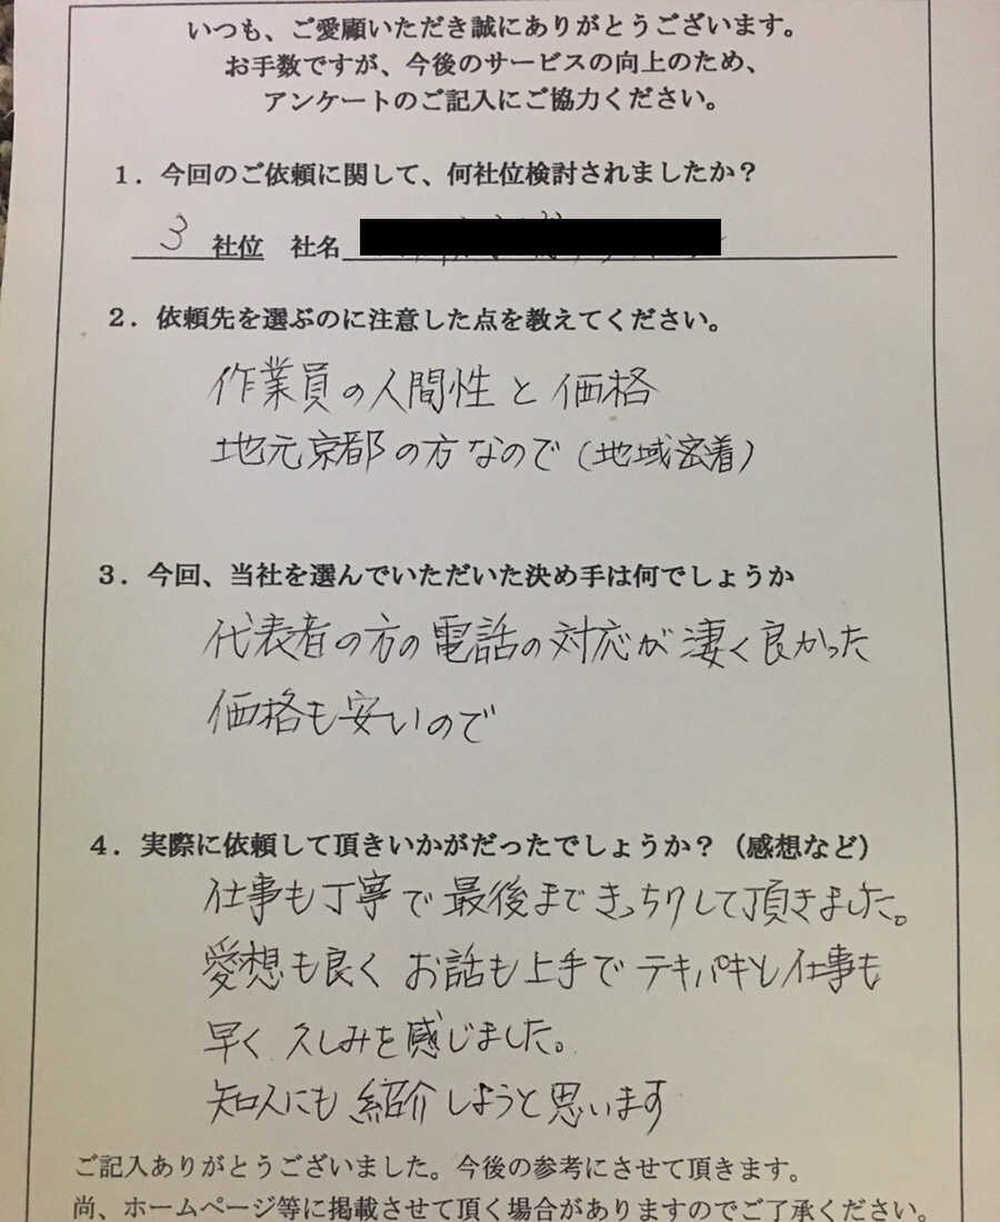 いつも、ご愛顧いただき誠にありがとうございます。
お手数ですが、今後のサービスの向上のため、
アンケートのご記入にご協力ください。
１．今回のご依頼に関して、何社位検討されましたか？
3 社位 社名
２．依頼先を選ぶのに注意した点を教えてください。
作業員の人間性と価格
地元京都の方なので（地域密着）
３．今回、当社を選んでいただいた決め手は何でしょうか
代表者の方の電話の対応が凄く良かった
価格も安いので
４．実際に依頼して頂きいかがだったでしょうか？（感想など）
仕事も丁寧で最後まできっちりして頂きました。
愛想も良く お話も上手でテキパキと仕事も
早く 久しみを感じました。
知人にも紹介しようと思います
ご記入ありがとうございました。今後の参考にさせて頂きます。
尚、ホームページ等に掲載させて頂く場合がありますのでご了承ください。